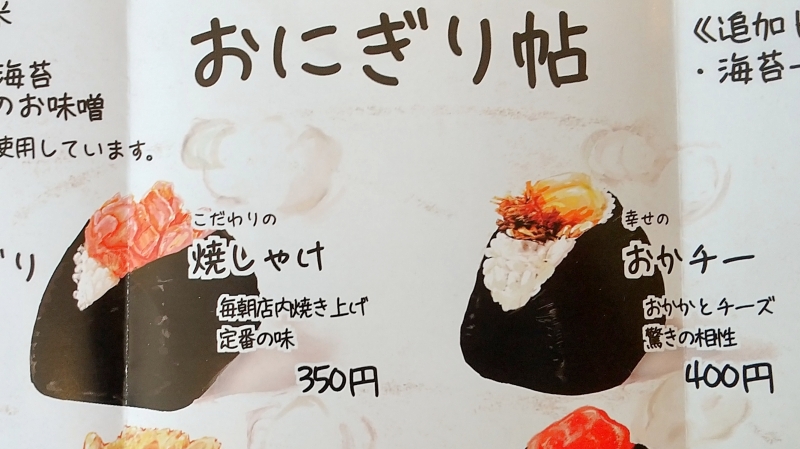 米
海苔
のお味噌
使用しています。
おにぎり帖
《追加
・海苔
ぎり
こだわりの
焼しゃけ
毎朝店内焼き上げ
定番の味
350円
幸せの
おかチー
おかかとチーズ
驚きの相性
400円